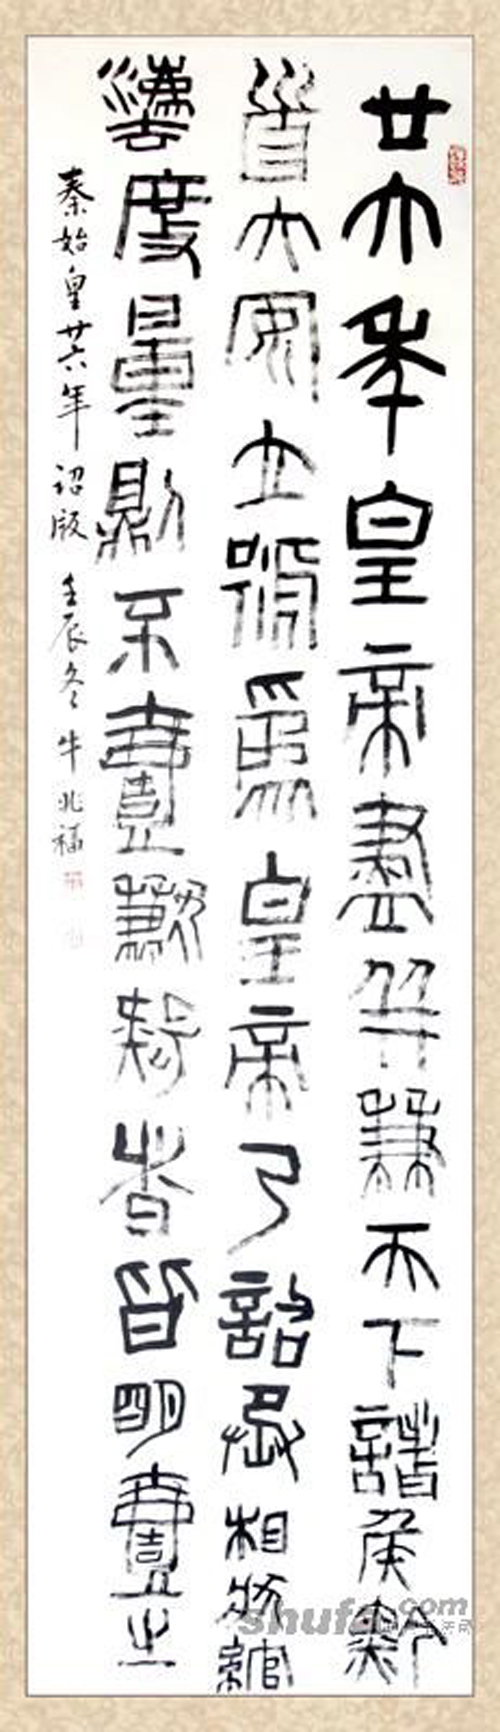 廿六年皇帝盡并兼天下諸侯黔
首大安立號為皇帝乃詔丞相狀綰
灋度量則不壹歉疑者皆明壹之
秦始皇廿六年詔版 壬辰冬 牛兆福
shufa.com